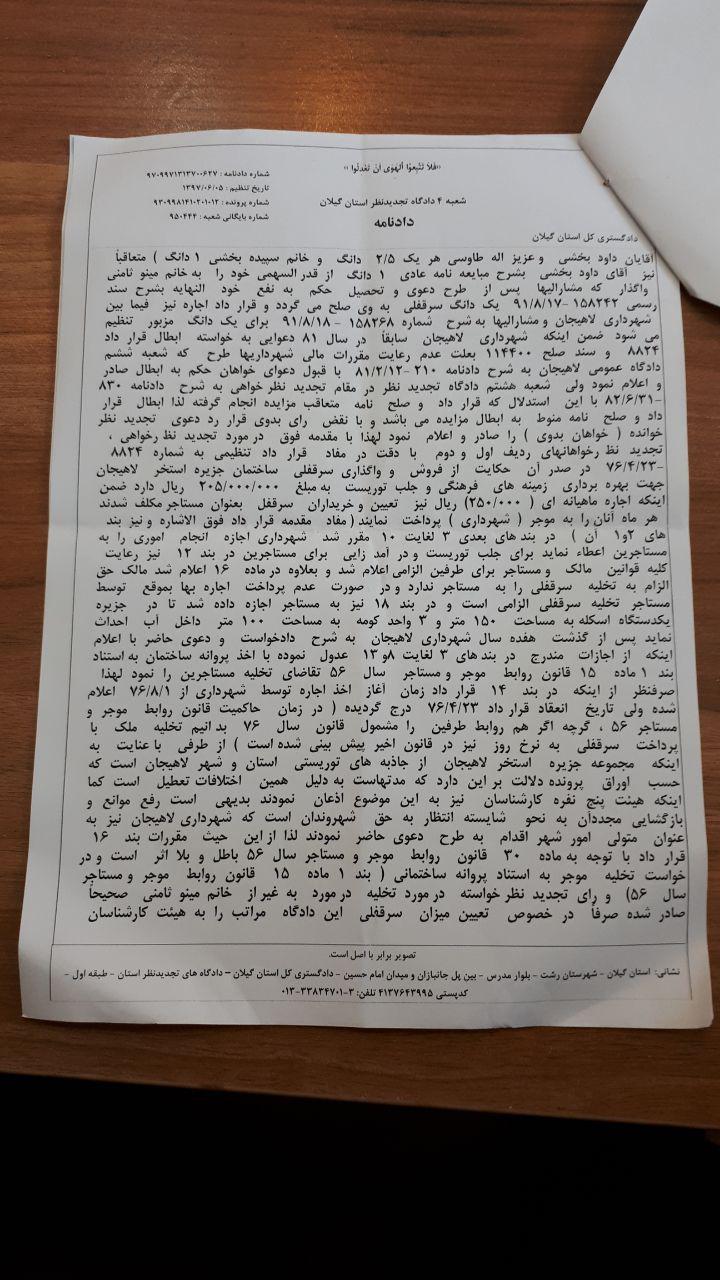 «فَلا تَتَّبِعوُا اَلهَوی اَنْ تَعْدِلُوا»
شماره دادنامه : ۹۷۰۹۹۷۱۳۱۳۷۰۰۶۲۷
تاریخ تنظیم : ۱۳۹۷/۰۶/۰۵
شماره پرونده : ۹۳۰۹۹۸۱۴۱۰۲۰۱۰۱۲
شماره بایگانی شعبه : ۹۵۰۴۴۴
شعبه ۴ دادگاه تجدیدنظر استان گیلان
دادنامه
دادگستری کل استان گیلان
آقایان داود بخشی و عزیز اله طاوسی هر یک ۲/۵ دانگ و خانم سپیده بخشی ۱ دانگ ) متعاقباً
نیز آقای داود بخشی بشرح مبایعه نامه عادی ۱ دانگ از قدر السهمی خود را به خانم مینو ثامنی
واگذار که مشارالیها پس از طرح دعوی و تحصیل حکم به نفع خود النهایه بشرح سند
رسمی ۱۵۸۲۴۲ -۹۱/۸/۱۷ یک دانگ سرقفلی به وی صلح می گردد و قرار داد اجاره نیز فیما بین
شهرداری لاهیجان و مشارالیها به شرح شماره ۱۵۸۲۶۸ - ۹۱/۸/۱۸ برای یک دانگ مزبور تنظیم
می شود ضمن اینکه شهرداری لاهیجان سابقاً در سال ۸۱ دعوایی به خواسته ابطال قرار داد
۸۸۲۴ و سند صلح ۱۱۴۴۰۰ بعلت عدم رعایت مقررات مالی شهرداریها طرح که شعبه ششم
دادگاه عمومی لاهیجان به شرح دادنامه ۲۱۰ -۸۱/۲/۱۲ با قبول دعوای خواهان حکم به ابطال صادر
و اعلام نمود ولی شعبه هشتم دادگاه تجدید نظر در مقام تجدید نظر خواهی به شرح دادنامه ۸۳۰
-۸۲/۶/۳۱ با این استدلال که قرار داد و صلح نامه متعاقب مزایده انجام گرفته لذا ابطال قرار
داد و صلح نامه منوط به ابطال مزایده می باشد و با نقض رای بدوی قرار رد دعوی تجدید نظر
خوانده ( خواهان بدوی ) را صادر و اعلام نمود لهذا با مقدمه فوق در مورد تجدید نظ رخواهی ،
تجدید نظ رخواهانهای ردیف اول و دوم با دقت در مفاد قرار داد تنظیمی به شماره ۸۸۲۴
-۷۶/۴/۲۳ در صدر آن حکایت از فروش و واگذاری سرقفلی ساختمان جزیره استخر لاهیجان
جهت بهره برداری زمینه های فرهنگی و جلب توریست به مبلغ ۲۰۵/۰۰۰/۰۰۰ ریال دارد ضمن
اینکه اجاره ماهیانه ای ( ۲۵۰/۰۰۰) ریال نیز تعیین و خریداران سرقفل بعنوان مستاجر مکلف شدند
هر ماه آنان را به موجر ( شهرداری ) پرداخت نمایند( مفاد مقدمه قرار داد فوق الاشاره و نیز بند
های ۲و۱ آن ) در بند های بعدی ۳ لغایت ۱۰ مقرر شد شهرداری اجازه انجام اموری را به
مستاجرین اعطاء نماید برای جلب توریست و در آمد زایی برای مستاجرین در بند ۱۲ نیز رعایت
کلیه قوانین مالک و مستاجر برای طرفین الزامی اعلام شد و بعلاوه در ماده ۱۶ اعلام شد مالک حق
الزام به تخلیه سرقفلی را به مستاجر ندارد و در صورت عدم پرداخت اجاره بها بموقع توسط
مستاجر تخلیه سرقفلی الزامی است و در بند ۱۸ نیز به مستاجر اجازه داده شد تا در جزیره
یکدستگاه اسکله به مساحت ۱۵۰ متر و ۳ واحد کومه به مساحت ۱۰۰ متر داخل آب احداث
نماید پس از گذشت هفده سال شهرداری لاهیجان به شرح دادخواست و دعوی حاضر با اعلام
اینکه از اجازات مندرج در بند های ۳ لغایت ۸و ۱۳ عدول نموده با اخذ پروانه ساختمان به استناد
بند ۱ ماده ۱۵ قانون روابط موجر و مستاجر سال ۵۶ تقاضای تخلیه مستاجرین را نمود لهذا
صرفنظر از اینکه در بند ۱۴ قرار داد زمان آغاز اخذ اجاره توسط شهرداری از ۷۶/۸/۱ اعلام
شده ولی تاریخ انعقاد قرار داد ۷۶/۴/۲۳ درج گردیده ( در زمان حاکمیت قانون روابط موجر و
مستاجر ۵۶ ، گرچه اگر هم روابط طرفین را مشمول قانون سال ۷۶ بدانیم تخلیه ملک با
پرداخت سرقفلی به نرخ روز نیز در قانون اخیر پیش بینی شده است ) از طرفی با عنایت به
اینکه مجموعه جزیره استخر لاهیجان از جاذبه های توریستی استان و شهر لاهیجان است که
حسب اوراق پرونده دلالت بر این دارد که مدتهاست به دلیل همین اختلافات تعطیل است کما
اینکه هیئت پنج نفره کارشناسان نیز به این موضوع اذعان نمودند بدیهی است رفع موانع و
بازگشایی مجددآن به نحو شایسته انتظار به حق شهروندان است که شهرداری لاهیجان نیز به
عنوان متولی امور شهر اقدام به طرح دعوی حاضر نمودند لذا از این حیث مقررات بند ۱۶
قرار داد با توجه به ماده ۳۰ قانون روابط موجر و مستاجر سال ۵۶ باطل و بلا اثر است و در
خواست تخلیه موجر به استناد پروانه ساختمانی ( بند ۱ ماده ۱۵ قانون روابط موجر و مستاجر
سال ۵۶) و رای تجدید نظر خواسته در مورد تخلیه در مورد به غیر از خانم مینو ثامنی صحیحاً
صادر شده صرفاً در خصوص تعیین میزان سرقفلی این دادگاه مراتب را به هیئت کارشناسان
تصویر برابر با اصل است.
نشانی: استان گیلان - شهرستان رشت - بلوار مدرس - بین پل جانبازان و میدان امام حسین - دادگستری کل استان گیلان - دادگاه های تجدیدنظر استان - طبقه اول -
کدپستی ۴۱۳۷۶۴۳۹۹۵ تلفن: ۳-۳۳۸۳۴۷۰۱-۰۱۳